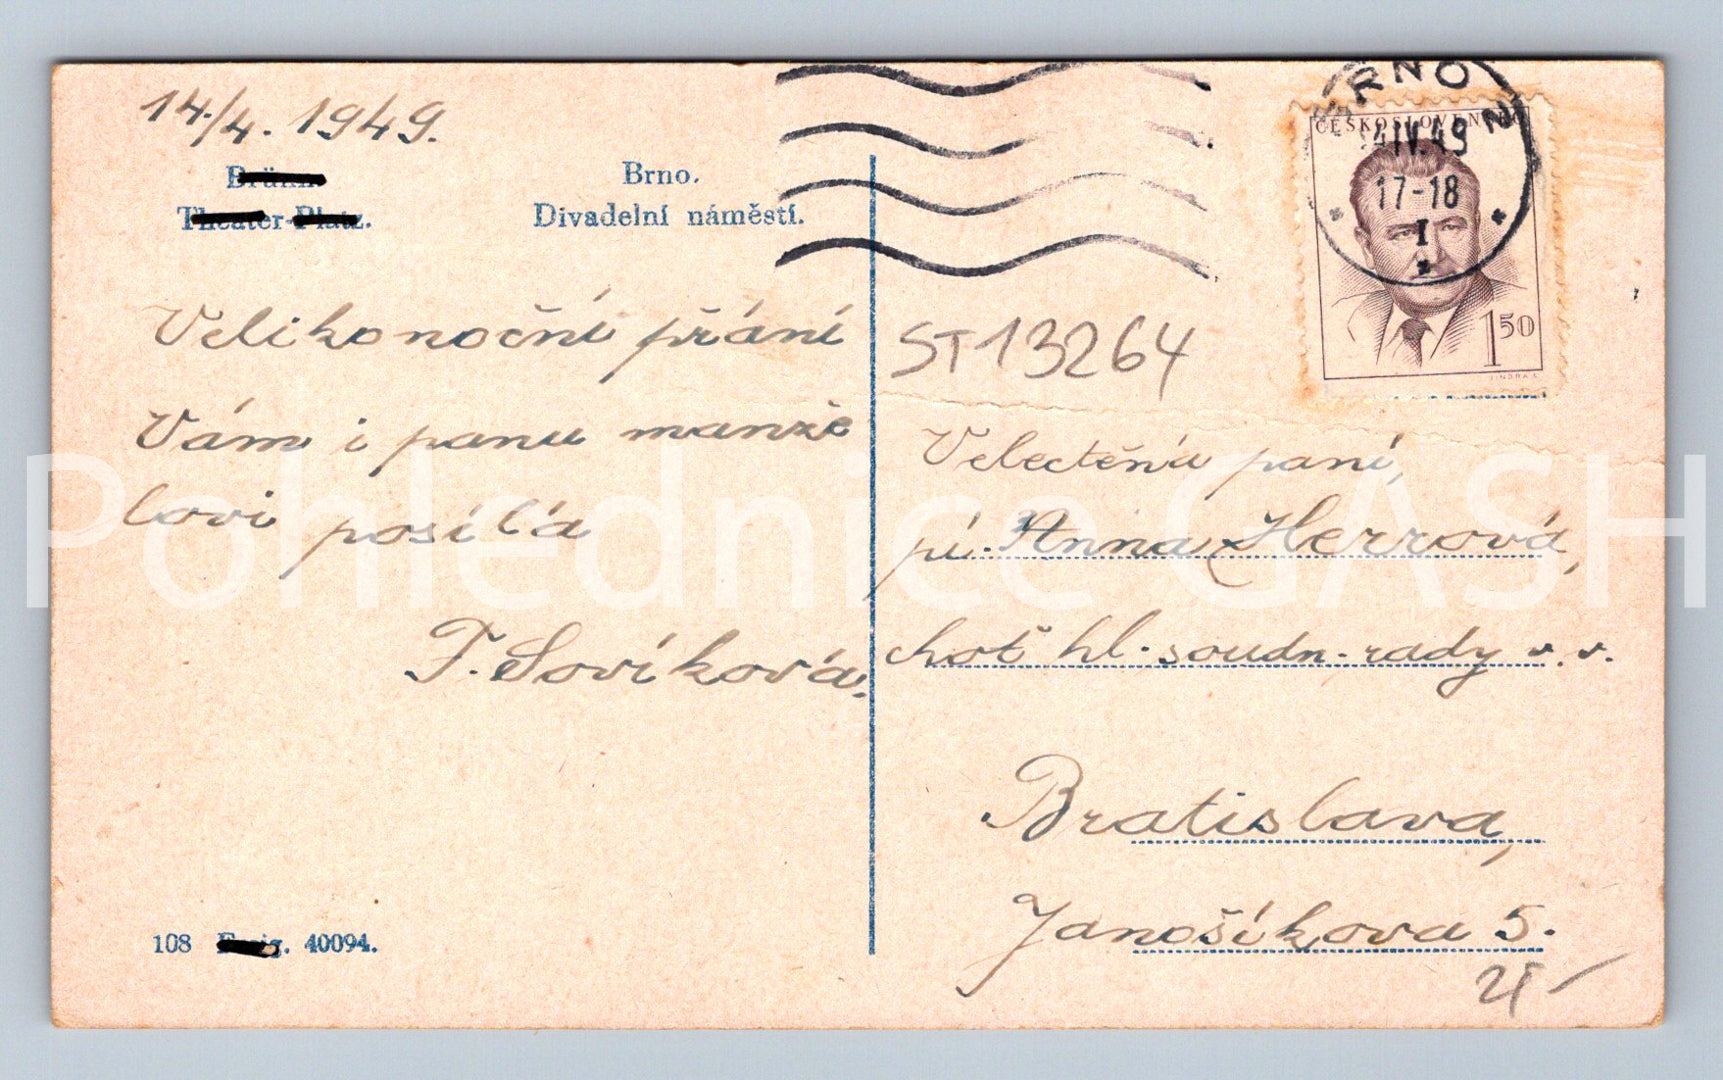 14./4. 1949.
Brünn.
Theater-Platz.
Brno.
Divadelní náměstí.
Velikonoční přání
Vám i panu manže
lovi posílá
F. Sovíková.
108 40094.
BRNO 2
14 IV. 49
17-18
I
ČESKOSLOVENSKO
1 50
ST13264
Velectěná paní,
pí. Anna Herrová,
choť hl. soudn. rady v. v.
Bratislava,
Janošíkova 5.
Pohlednice GASH